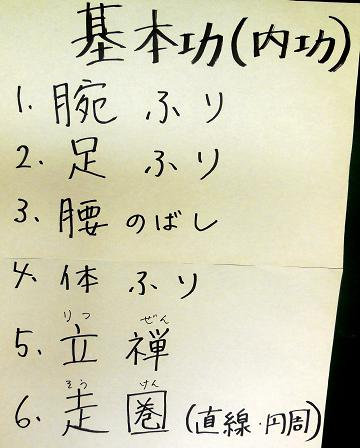 基本功(内功)
1. 腕ふり
2. 足ふり
3. 腰のばし
4. 体ふり
りつ ぜん
5. 立禅
そう けん
6. 走圏(直線・円周)